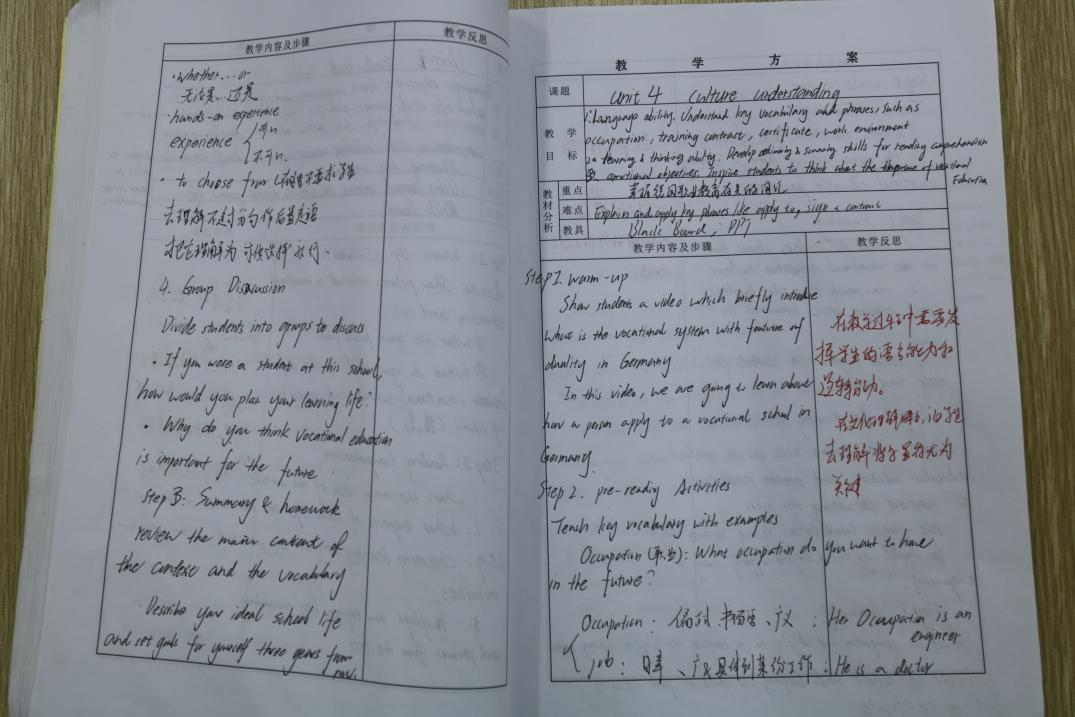 教学内容及步骤 教学反思
· whether...or
无论是...还是
· hands-on experience
experience { 可n
不可n.
· to choose from
去理解 不定式 作后置定语
把它理解为 可供选择 就行.
4. Group Discussion
Divide students into groups to discuss
· If you were a student at this school,
how would you plan your learning life?
· Why do you think vocational education
is important for the future
Step 3: Summary & homework
review the main content of
the context and the vocabulary
· Describe your ideal school life
and set goals for yourself three years from
now.
教 学 方 案
课题 Unit 4 Culture understanding
教 学 目 标
1. Language ability. Understand key vocabulary and phrases, such as
occupation, training contract, certificate, work environment
2. learning & thinking ability. Develop skimming & scanning skills for reading comprehension
3. emotional objectives. Inspire students to think about the importance of vocational
Education
教材分析
重点 掌握德国职业教育有关的词汇
难点 Explain and apply key phrases like apply to, sign a contract
教具 Black board, PPT
教学内容及步骤 教学反思
Step 1. warm-up
Show students a video which briefly introduce
what is the vocational system with feature of
duality in Germany
In this video, we are going to learn about
how a person apply to a vocational school in
Germany.
Step 2. pre-reading Activities
Teach key vocabulary with examples
Occupation (职业): What occupation do you want to have
in the future?
Occupation: 偏正式 书面语、广义; Her Occupation is an
engineer
job: 日常、广义具体到某份工作; He is a doctor
在教学过程中需要发
挥学生的语言能力和
逻辑能力。
去理解
关键